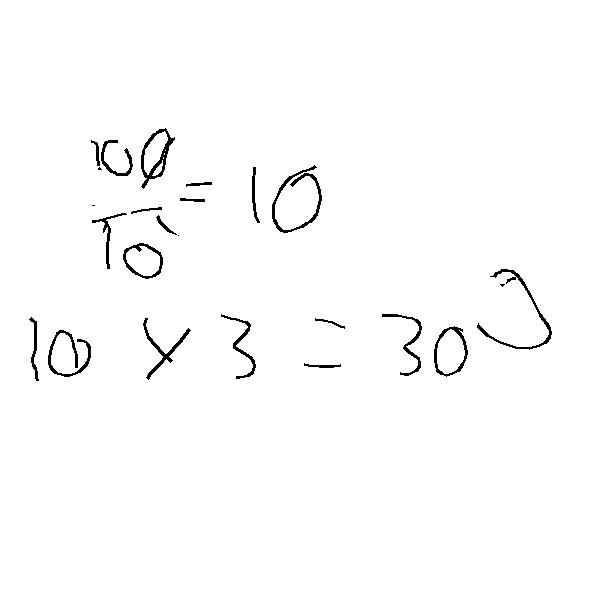 100
10
= 10
10 x 3 = 30